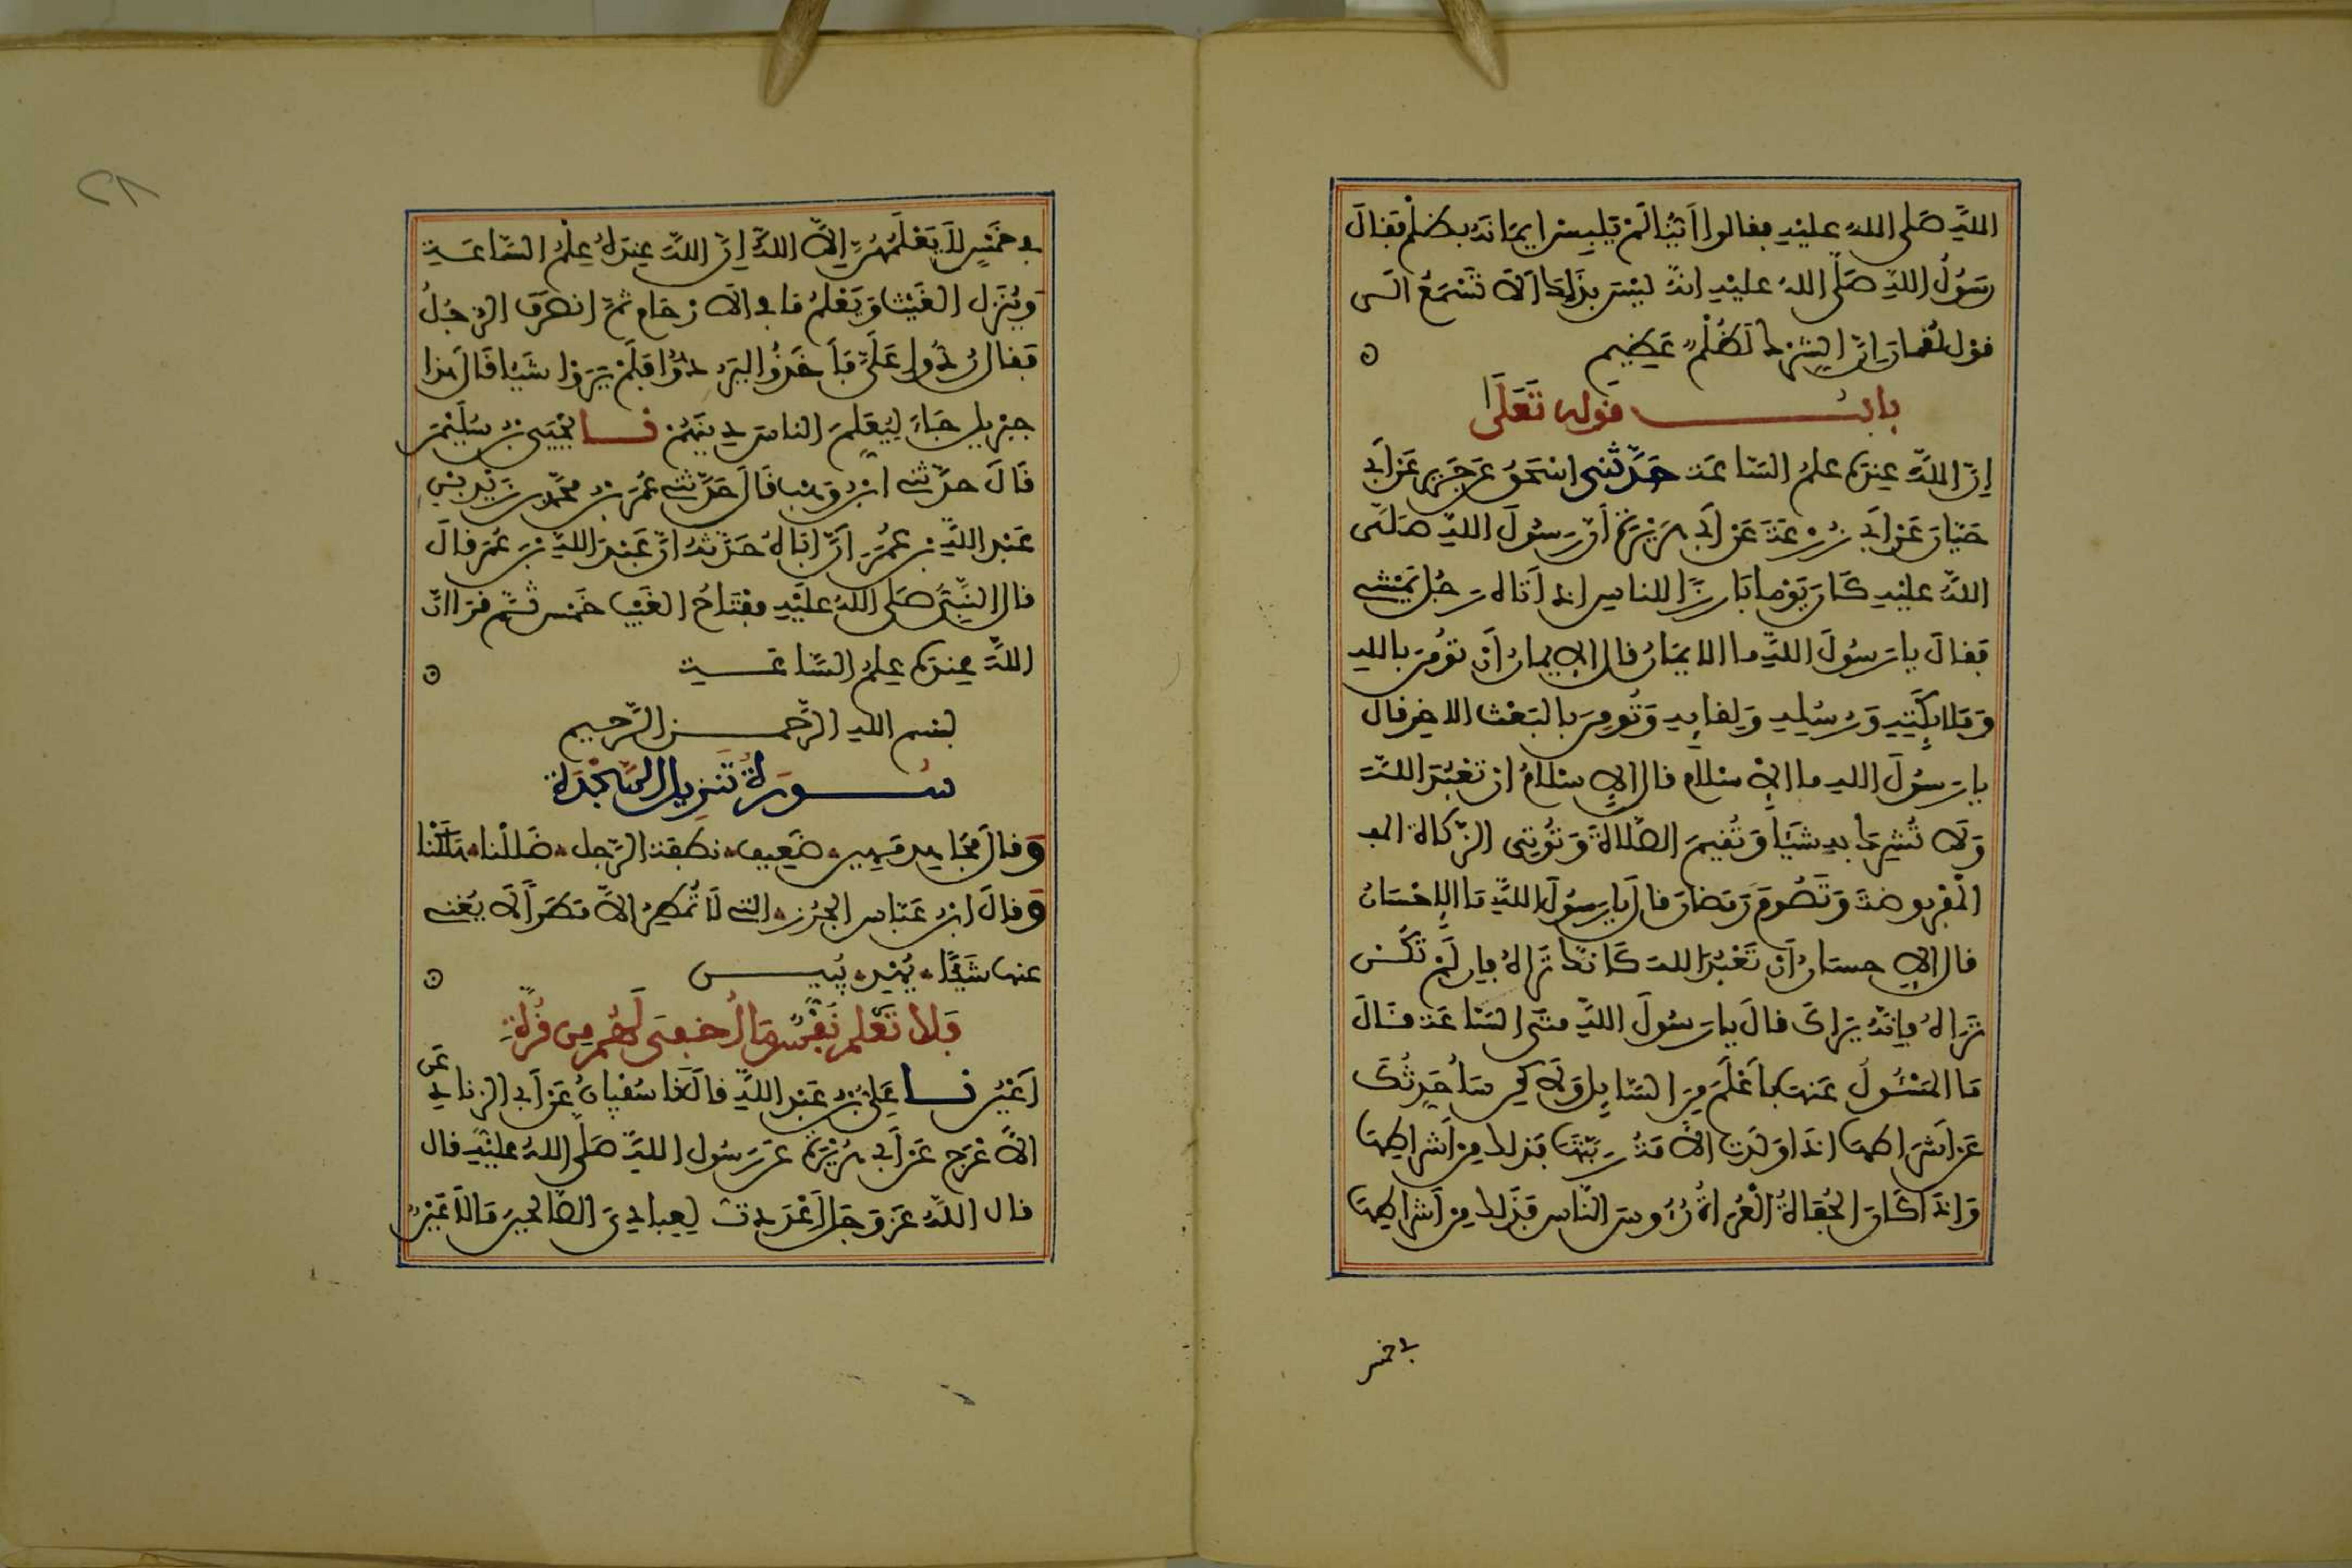 اللهِ صَلى اللهُ عليْهِ فقالوا اَيُّنا لَمْ يَلبِسْ اِيمَانَه بظُلْمٍ فَقالَ
رَسُولُ اللهِ صَلَّى اللهُ عليْهِ انهُ ليْسَ بِذَاكَ اَلَا تَسْمَعُ الى
قوْلِ لقمانَ اِنَّ الشِّرْكَ لَظُلْمٌ عَظِيم
بابُ قوله تَعَلَى
اِنَّ اللهَ عِندَهُ علمُ السَّاعَة حَدَّثَنِى اسْحَقُ عَن جَرِيرٍ عَنْ اَبِى
حَيَّانَ عَنْ اَبِى زُرْعَةَ عَنْ اَبِى هُرَيْرَةَ اَنَّ رَسُولَ اللهِ صَلَّى
اللهُ عليْهِ كَانَ يَوْمًا بَارِزًا للناسِ اِذ اَتَاهُ رَجُل يَمْشِى
فَقالَ يا رَسُولَ اللهِ ما الايمَانُ قال الايمانُ اَن تُومِنَ باللهِ
وَمَلائِكَتِهِ وَرُسُلِهِ وَلِقايِهِ وَتُومِنَ بالبَعْث الاخِرِ قالَ
يا رَسُولَ اللهِ ما الاِسْلام قال الاِسْلامُ ان تَعْبُدَ اللهَ
وَلَا تُشْرِكَ بهِ شَيْئا وَتُقِيمَ الصَّلاةَ وَتُوتِى الزَّكاةَ المف
الْمَفْرُوضَةَ وَتَصُومَ رَمَضانَ قالَ يا رَسُولَ اللهِ مَا الاِحْسَانُ
قال الاِحسَانُ اَن تَعْبُدَ اللهَ كَانكَ تَرَاهُ فإن لَمْ تَكُنْ
تَرَاهُ فإنهُ يَرَاكَ قالَ يا رَسُولَ اللهِ مَتَى السَّاعَة قالَ
مَا المَسْئُولُ عَنها بأعْلَمَ مِنَ السَّايِلِ وَلَاكِن سَأُحَدِّثُكَ
عَنْ اَشْرَاطِهَا اِذَا وَلَدَتِ الاَمَةُ رَبَّتَهَا فَذَلِكَ مِن اَشْرَاطِهَا
وَاِذَا كَانَ الحُفَاةُ الْعُرَاةُ رُءُوسَ النَّاسِ فَذَلكَ مِن اَشْرَاطِهَا
فى خمس
فى خَمْسٍ لا يَعْلَمُهُنَّ إِلَّا اللهُ إِنَّ اللهَ عِندَهُ عِلْمُ السَّاعَةِ
وَيُنَزِّل الغَيْثَ وَيَعْلَمُ مَا فى الاَرْحَامِ ثمَّ انصَرَفَ الرَّجُلُ
فَقالَ رُدُّوا عَلَىَّ فَأَخَذُوا لِيَرُدُّوا فَلَمْ يَرَوْا شَيْئا فَقَالَ هَذا
جِبْرِيل جَاءَ لِيُعَلِّمَ الناس دِينَهُمْ نا يَحْيَى بْنُ سُلَيْمَن
قَالَ حَدَّثَنى ابْنُ وَهْب قَالَ حَدَّثَنى عُمَرُ بْنُ محَمَّدِ بن زَيْدِ بْنِ
عَبْدِ اللهِ بن عُمَرَ اَنَّ اَبَاهُ حَدَّثَهُ انَّ عَبْدَ اللهِ بْنَ عُمَرَ قالَ
قال النَّبِىُّ صَلى اللهُ عليْهِ مِفْتَاحُ الغَيْبِ خَمْس ثُمّ قَرَا انَّ
اللهَ عِندَهُ عِلمُ السَّاعَةِ
بِسْم اللهِ الرَّحْمَنِ الرَّحِيم
سُورَةُ تَنزِيل السَّجْدَة
وَقالَ مُجَاهِد مَهِين ضَعِيف نطفَة الرَّجل ضَلَلْنا هَلَكْنا
وَقالَ ابْنُ عَبَّاس الجُرُز التى لَا تُمْطِرُ اِلَّا مَطَرًا لَا يُغنى
عنها شَيْئًا يُهْدِ يُبيِّن
فَلَا تَعْلم نَفْسٌ مَّا أُخفِىَ لَهُم مِن قُرَّةِ
اَعْيُن نا عَلِىُّ بْنُ عَبْدِ اللهِ قالَ نا سُفْيَانُ عَنْ اَبِى الزِّنادِ عَنِ
الاَعْرَجِ عَنْ اَبِى هُرَيْرَة عَن رَسُول اللهِ صَلَّى اللهُ عليْهِ قال
قال اللهُ عَزَّ وَجَلَّ اَعْدَدتُّ لِعِبَادِىَ الصَّالحِينَ مَا لَا عَيْنٌ